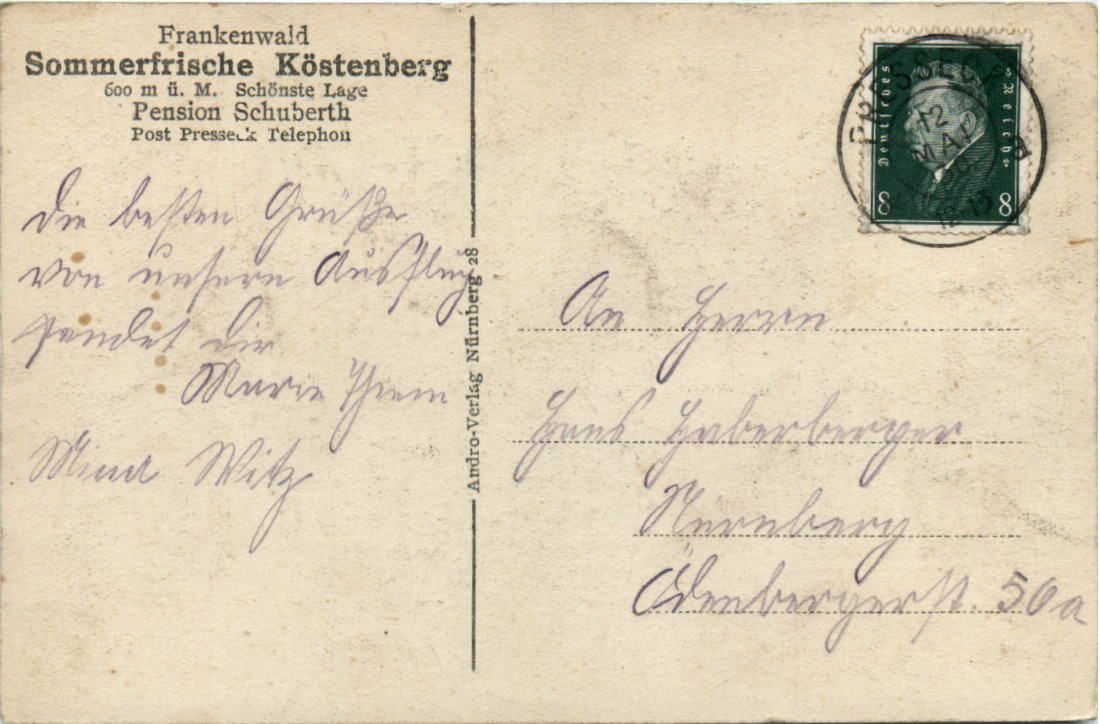 Frankenwald
Sommerfrische Köstenberg
600 m ü. M. Schönste Lage
Pension Schuberth
Post Presseck Telephon
Die besten Grüße
von unsern Ausflug
sendet dir
Marie Thiem
Mina Witz
Andro-Verlag Nürnberg 28
PRESSECK
12
MAI
12-13
a
Deutsches Reich
8 8
An Herrn
Hans Haberberger
Nürnberg
Ödenbergerst. 50a